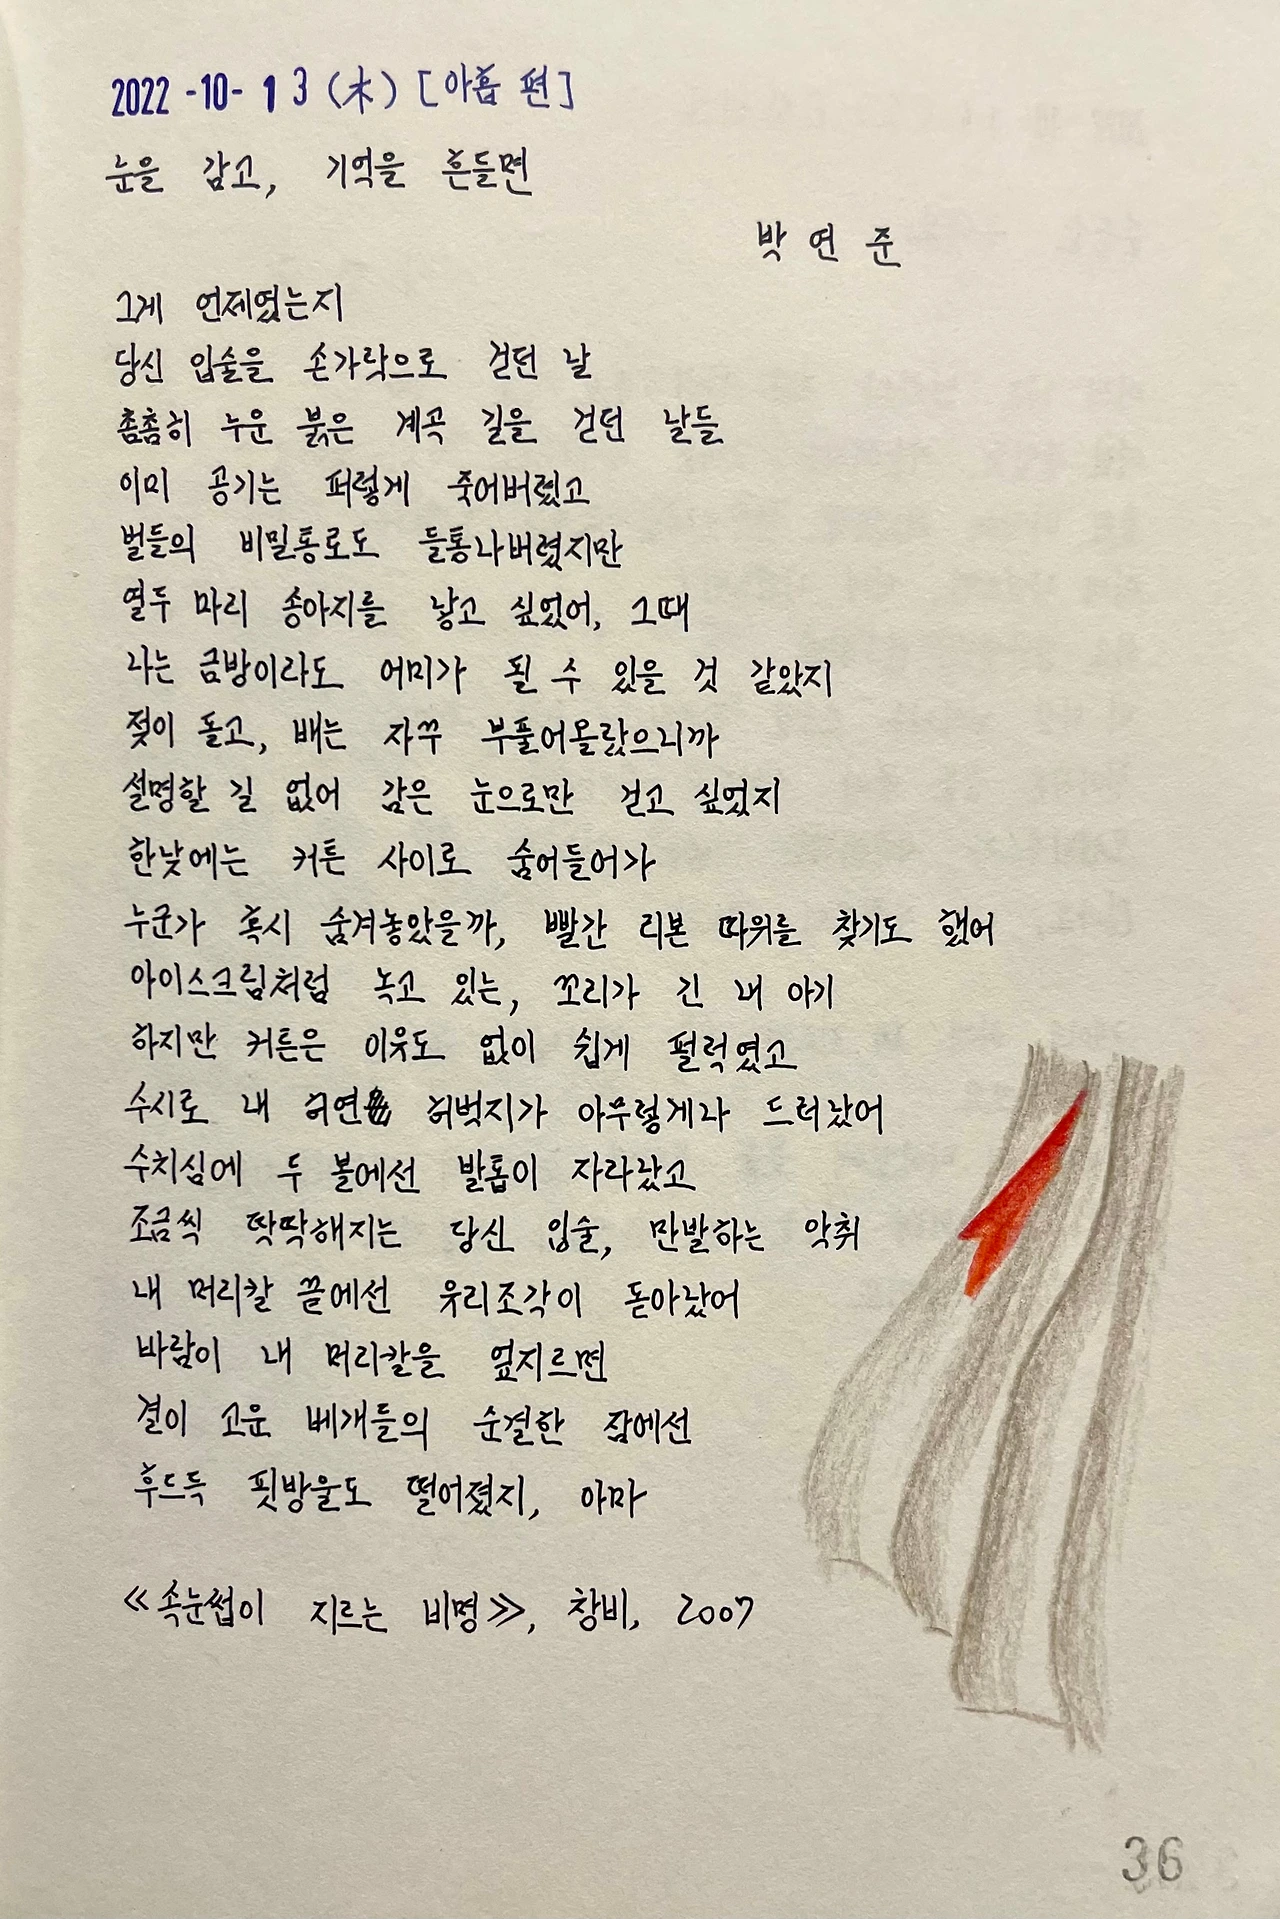 2022-10-13 (木) [아홉 편]
눈을 감고, 기억을 흔들면
박연준
그게 언제였는지
당신 입술을 손가락으로 걷던 날
촘촘히 누운 붉은 계곡 길을 걷던 날들
이미 공기는 퍼렇게 죽어버렸고
벌들의 비밀통로도 들통나버렸지만
열두 마리 송아지를 낳고 싶었어, 그때
나는 금방이라도 어미가 될 수 있을 것 같았지
젖이 돌고, 배는 자꾸 부풀어올랐으니까
설명할 길 없어 감은 눈으로만 걷고 싶었지
한낮에는 커튼 사이로 숨어들어가
누군가 혹시 숨겨놓았을까, 빨간 리본 따위를 찾기도 했어
아이스크림처럼 녹고 있는, 꼬리가 긴 내 아기
하지만 커튼은 이유도 없이 쉽게 펄럭였고
수시로 내 허연 허벅지가 아무렇게나 드러났어
수치심에 두 볼에선 발톱이 자라났고
조금씩 딱딱해지는 당신 입술, 만발하는 악취
내 머리칼 끝에선 유리조각이 돋아났어
바람이 내 머리칼을 엎지르면
결이 고운 베개들의 순결한 잠에선
후드득 핏방울도 떨어졌지, 아마
≪속눈썹이 지르는 비명≫, 창비, 2007
36